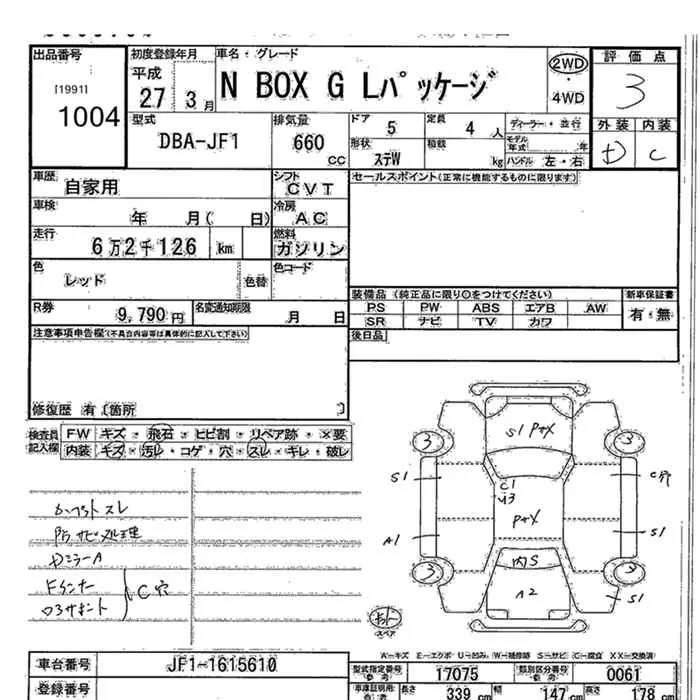 出品番号 初度登録年月 車名・グレード 評価点
[1991] 平成 2WD
1004 27 3月 N BOX G Lパッケージ 4WD 3
型式 排気量 ドア 5 定員 4 人 ディーラー・並行 外装 内装
DBA-JF1 660 CC 形状 ステW 積載 kg モデル年式 年 ハンドル 左・右 D C
車歴 自家用 シフト CVT セールスポイント(正常に機能するものに限ります)
車検 年 月( 日) 冷房 AC
走行 6万2千126 km 燃料 ガソリン
色 レッド 色替 色コード
装備品 (純正品に限り○をつけてください) 新車保証書
R券 9,790円 名変通知期限 月 日 PS PW ABS エアB AW 有・無
SR ナビ TV カワ
注意事項申告欄(不具合内容等は具体的に記入して下さい) 後日品
修復歴 有 〔箇所 〕
検査員記入欄 FW キズ・飛石・ヒビ割・リペア跡・×要
内装 キズ・汚レ・コゲ・穴・スレ・キレ・破レ
S1 P±X
3 3
S1 C1 C穴
U3
P±X
A1 S1
内S
3 3
A2 S1
ドミラーA
C穴
スペア
A=キズ E=エクボ U=凹み W=補修跡 S=サビ C=腐食 XX=交換済
車台番号 JF1-1615610 型式指定番号 参考 17075 類別区分番号 参考 0061
登録番号 車庫証明用 参考 長さ 339 cm 幅 147 cm 高さ 178 cm